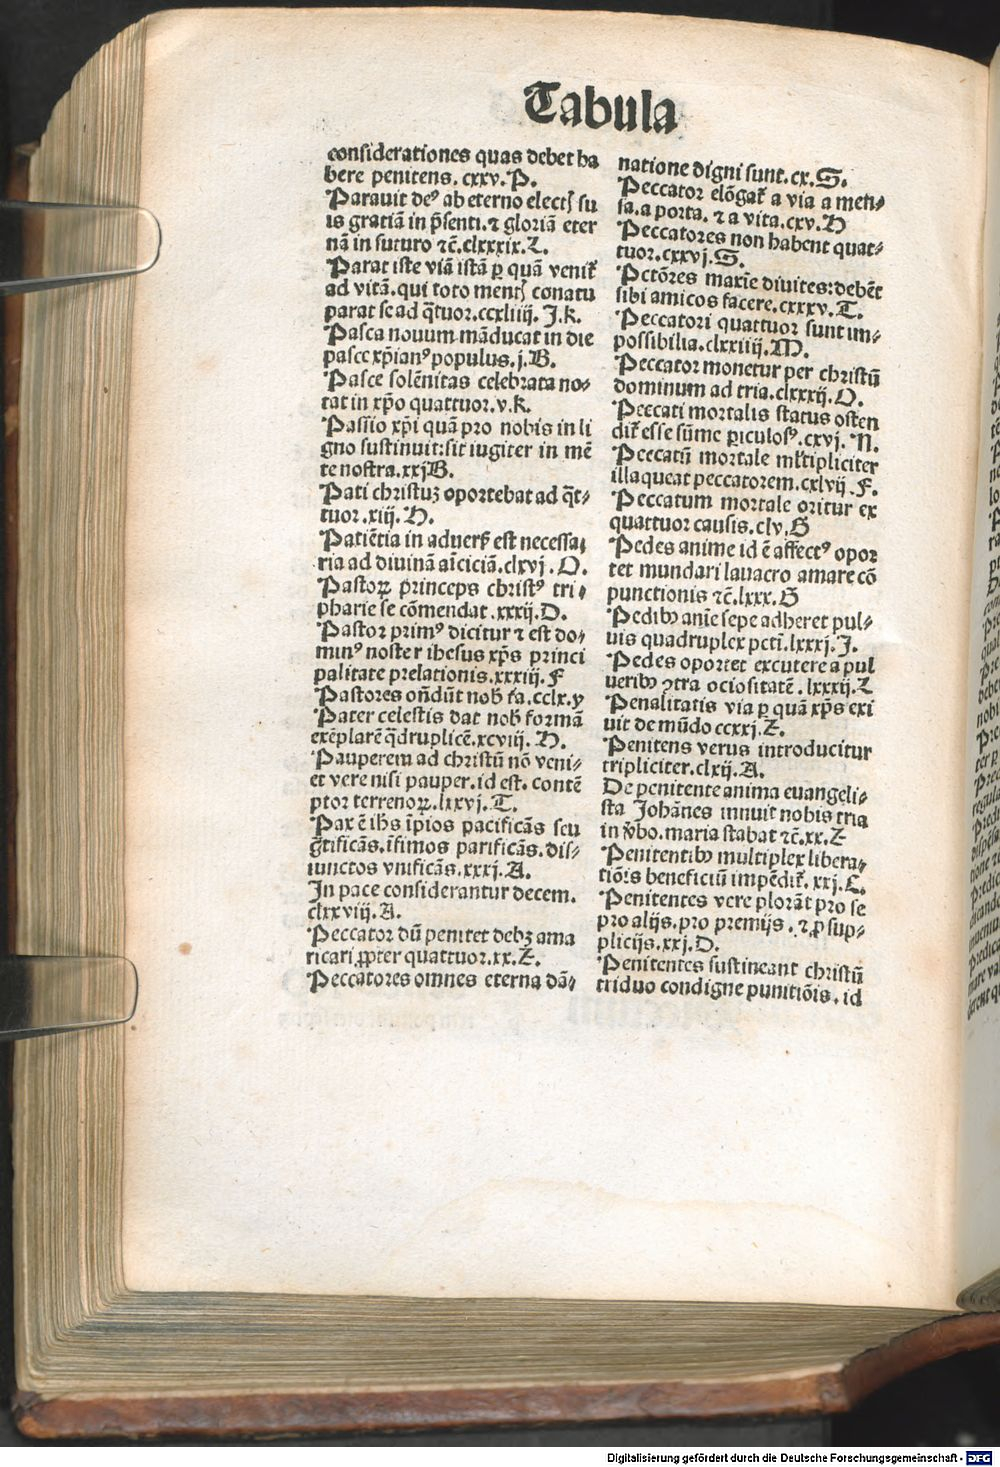 Tabula
considerationes quas debet ha
bere penitens. cxxv. P.
Parauit deꝰ ab eterno electꝭ su
is gratiā in p̄senti. ⁊ gloriā eter
nā in futuro ⁊c̄. clxxxix. L.
Parat iste viā istā ꝑ quā venit᷑
ad vitā. qui toto mentꝭ conatu
parat se ad q̄tuor. ccxliiij. J. k.
Pasca nouum māducat in die
pasce xp̄ianꝰ populus. j. B.
Pasce solēnitas celebrata no⸗
tat in xp̄o quattuor. v. k.
Passio xp̄i quā pro nobis in li
gno sustinuit: sit iugiter in mē
te nostra. xxj B.
Pati christuꝫ oportebat ad q̄t⸗
tuor. xiij. H.
Patiētia in aduerẜ est necessa⸗
ria ad diuinā aīciciā. clxvj. O.
Pastoꝝ princeps christꝰ tri⸗
pharie se cōmendat. xxxij. D.
Pastor primꝰ dicitur ⁊ est do⸗
minꝰ noster ihesus xp̄s princi
palitate prelationis. xxxiij. F
Pastores on̄dūt nob̄ t̄a. cclx. y
Pater celestis dat nob̄ formā
exēplarē q̄druplicē. xcviij. H.
Pauperem ad christū nō veni⸗
et vere nisi pauper. id est. contē
ptor terrenoꝝ. lxxvj. T.
Pax ē ih̄s īpios pacificās seu
gr̄tificās. īfimos parificās. dis⸗
iunctos vnificās. xxxj. A.
In pace considerantur decem.
clxxviij. A.
Peccator dū penitet debꝫ ama
ricari ꝓpter quattuor. xx. Z.
Peccatores omnes eterna dā⸗
natione digni sunt. cx. S.
Peccator elōgat᷑ a via a men⸗
sa. a porta. ⁊ a vita. cxv. H
Peccatores non habent quat⸗
tuor. cxxvj. S.
Pctōres maxīe diuites: debēt
sibi amicos facere. cxxxv. T.
Peccatori quattuor sunt im⸗
possibilia. clxxiiij. M.
Peccator monetur per christū
dominum ad tria. clxxxij. O.
Peccati mortalis status osten
dit᷑ esse sūme ꝑiculosꝰ. cxvj. N.
Peccatū mortale ml̄tipliciter
illaqueat peccatorem. cxlvij. F.
Peccatum mortale oritur ex
quattuor causis. clv. G
Pedes anime id ē affectꝰ opor
tet mundari lauacro amare cō
punctionis ⁊c̄. lxxx. G
Pedibꝰ anīe sepe adheret pul⸗
uis quadruplex pctī. lxxxj. J.
Pedes oportet excutere a pul
ueribꝰ ꝯtra ociositatē. lxxxij. L
Penalitatis via ꝑ quā xp̄s exi
uit de mūdo ccxxj. Z.
Penitens verus introducitur
tripliciter. clxij. A.
De penitente anima euangeli⸗
sta Johānes innuit nobis tria
in v̄bo. maria stabat ⁊c̄. xx. Z
Penitentibꝰ multiplex libera⸗
tiōis beneficiū impēdit᷑. xxj. C.
Penitentes vere plorāt pro se
pro alijs. pro premijs. ⁊ ꝓ sup⸗
plicijs. xxj. D.
Penitentes sustineant christū
triduo condigne punitiōis. id
Digitalisierung gefördert durch die Deutsche Forschungsgemeinschaft - DFG